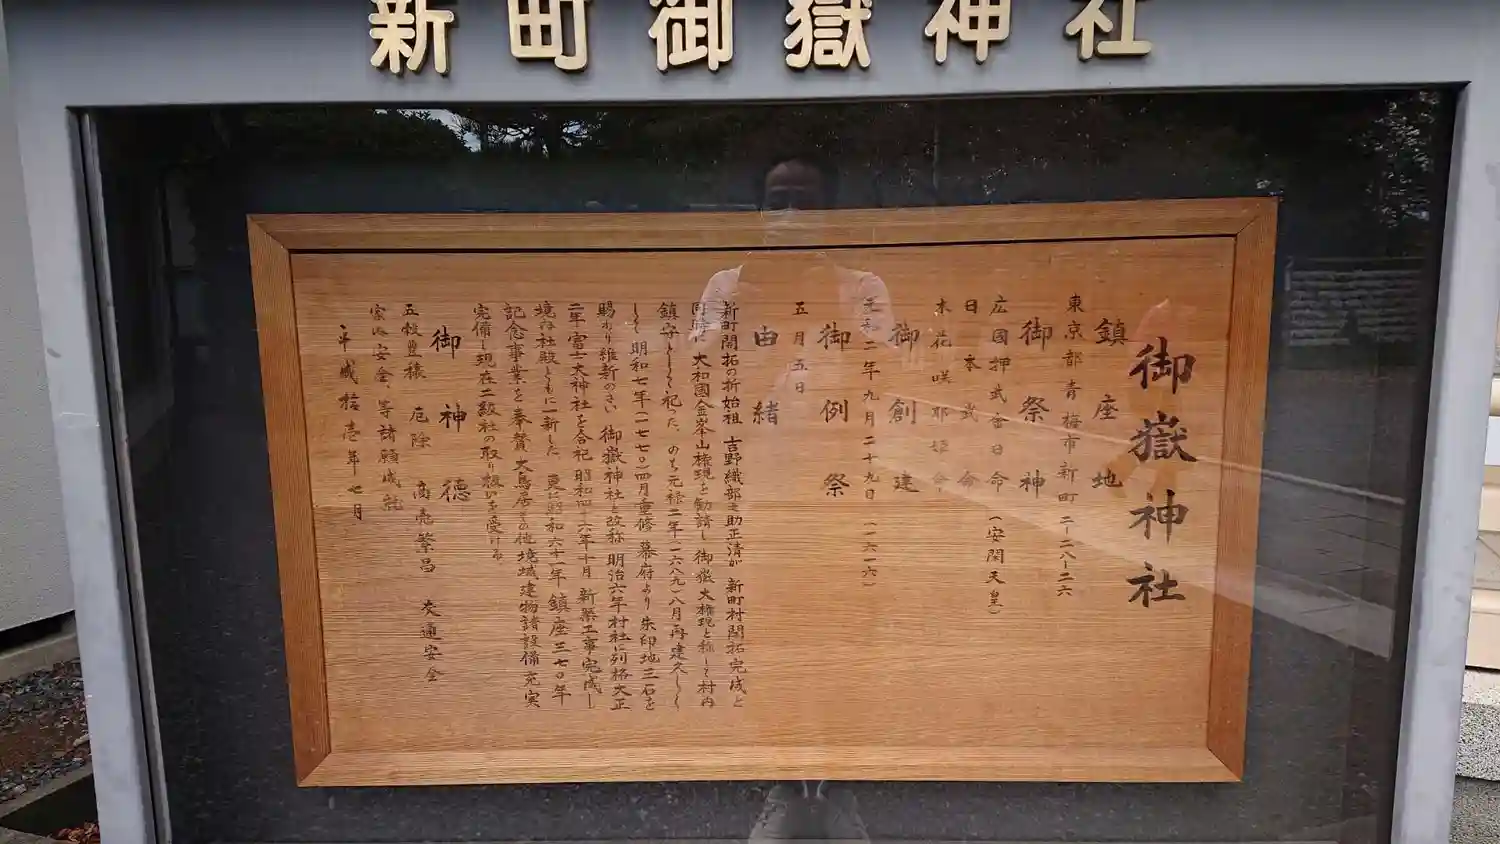 新町御嶽神社
御嶽神社
鎮座地
東京都青梅市新町二ー二八ー二六
御祭神
広國押武金日命(安閑天皇)
日本武命
木花咲耶姫命
御創建
元和二年九月二十九日(一六一六)
御例祭
五月五日
由緒
新町開拓の祈始祖 吉野織部之助正清が 新町村開拓完成と
同時に 大和國金峯山権現を勧請し 御嶽大権現と称して村内
鎮守として祀った。のち元禄二年(一六八九)八月再建久しく
して 明和七年(一七七〇)四月重修 幕府より朱印地三石を
賜わり維新のさい 御嶽神社と改称 明治六年村社に列格大正
二年富士大神社を合祀 昭和四十六年十月 新築工事完成し
境内社殿ともに一新した 更に昭和六十一年 鎮座三七〇年
記念事業を奉賛 大鳥居その他境域建物諸設備充実
完備し現在二級社の取り扱いを受ける
御神徳
五穀豊穣 厄除 商売繁昌 交通安全
家内安全 等諸願成就
平成拾壱年七月